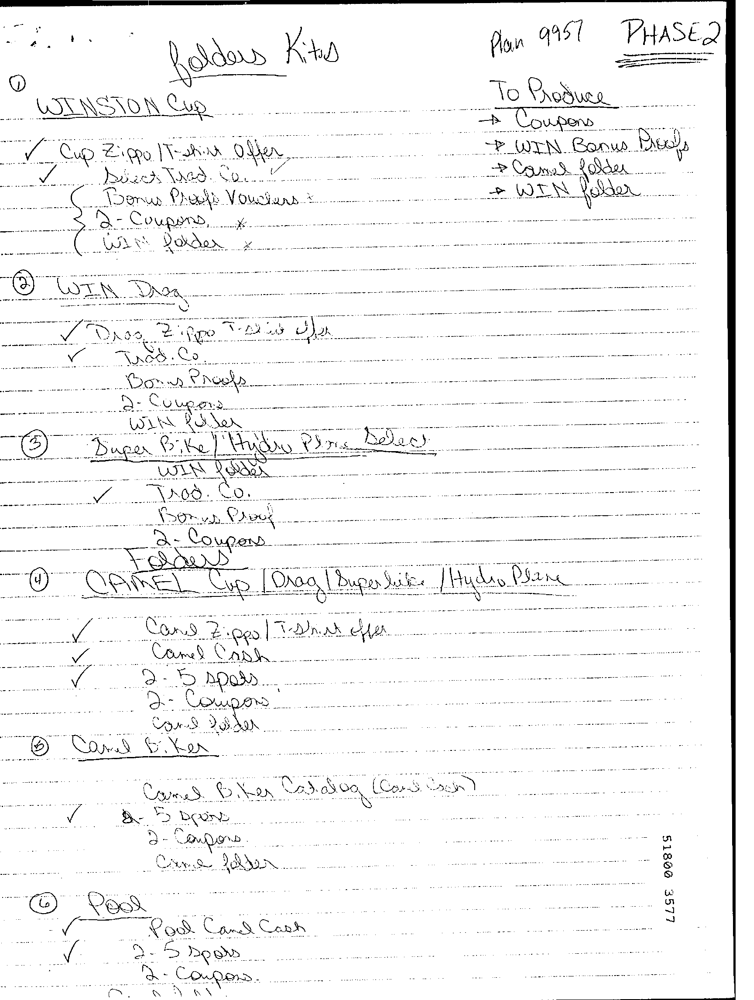 Folders Kits
Plan 9957 PHASE 2
① WINSTON Cup
✓ Cup Zippo/T-shirt Offer
✓ Select Trad. Co. ✓
Bonus Proofs Vouchers
2-Coupons x
WIN folder x
To Produce
→ Coupons
→ WIN Bonus Proofs
→ Camel folder
→ WIN folder
② WIN Drag
✓ Drag Zippo T-Shirt offer
✓ Trad. Co.
Bonus Proofs
2-Coupons
WIN folder
③ Super Bike/Hydro Plane Select
WIN folder
✓ Trad. Co.
Bonus Proof
2-Coupons
Folders
④ CAMEL Cup/Drag/Superbike/Hydro Plane
✓ Camel Zippo/T-Shirt offer
✓ Camel Cash
✓ 2-5 spots
2-Coupons
Camel folder
⑤ Camel Biker
Camel Biker Catalog (Camel Cash)
✓ 2-5 spots
2-Coupons
Camel folder
⑥ Pool
✓ Pool Camel Cash
✓ 2-5 spots
2-Coupons.
51800 3577